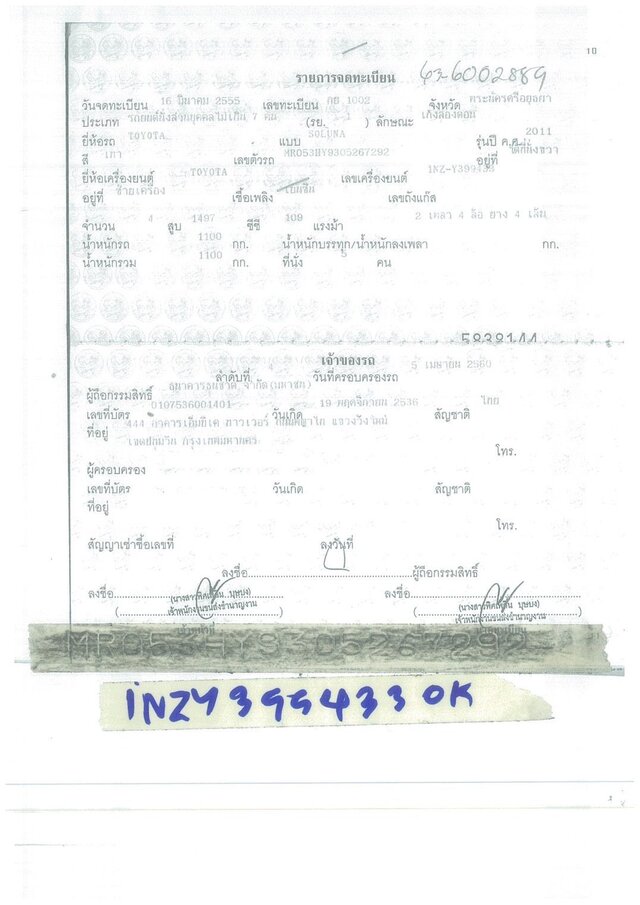 10
รายการจดทะเบียน
วันจดทะเบียน 16 มีนาคม 2555 เลขทะเบียน กย 1002 จังหวัด พระนครศรีอยุธยา
ประเภท รถยนต์นั่งส่วนบุคคลไม่เกิน 7 คน (รย. ) ลักษณะ เก๋งสองตอน
ยี่ห้อรถ TOYOTA แบบ SOLUNA รุ่นปี ค.ศ. 2011
สี เทา เลขตัวรถ MR053HY9305267292 อยู่ที่
ยี่ห้อเครื่องยนต์ TOYOTA เลขเครื่องยนต์ 1NZ-Y399433
อยู่ที่ ซ้ายเครื่อง เชื้อเพลิง เบนซิน เลขถังแก๊ส
จำนวน 4 สูบ 1497 ซีซี 109 แรงม้า 2 เพลา 4 ล้อ ยาง 4 เส้น
น้ำหนักรถ 1100 กก. น้ำหนักบรรทุก/น้ำหนักลงเพลา กก.
น้ำหนักรวม 1100 กก. ที่นั่ง 5 คน
5838144
เจ้าของรถ
ลำดับที่ วันที่ครอบครองรถ 5 เมษายน 2560
ผู้ถือกรรมสิทธิ์ ธนาคารธนชาต จำกัด (มหาชน)
เลขที่บัตร 0107536001401 วันเกิด 19 พฤศจิกายน 2536 สัญชาติ ไทย
ที่อยู่ 444 อาคารเอ็มบีเค ทาวเวอร์ ถนนพญาไท แขวงวังใหม่
เขตปทุมวัน กรุงเทพมหานคร
โทร.
ผู้ครอบครอง
เลขที่บัตร วันเกิด สัญชาติ
ที่อยู่
โทร.
สัญญาเช่าซื้อเลขที่ ลงวันที่
ลงชื่อ ผู้ถือกรรมสิทธิ์
ลงชื่อ ลงชื่อ
เจ้าพนักงานขนส่งชำนาญงาน เจ้าพนักงานขนส่งชำนาญงาน
MR053HY9305267292
1NZY399433 OK